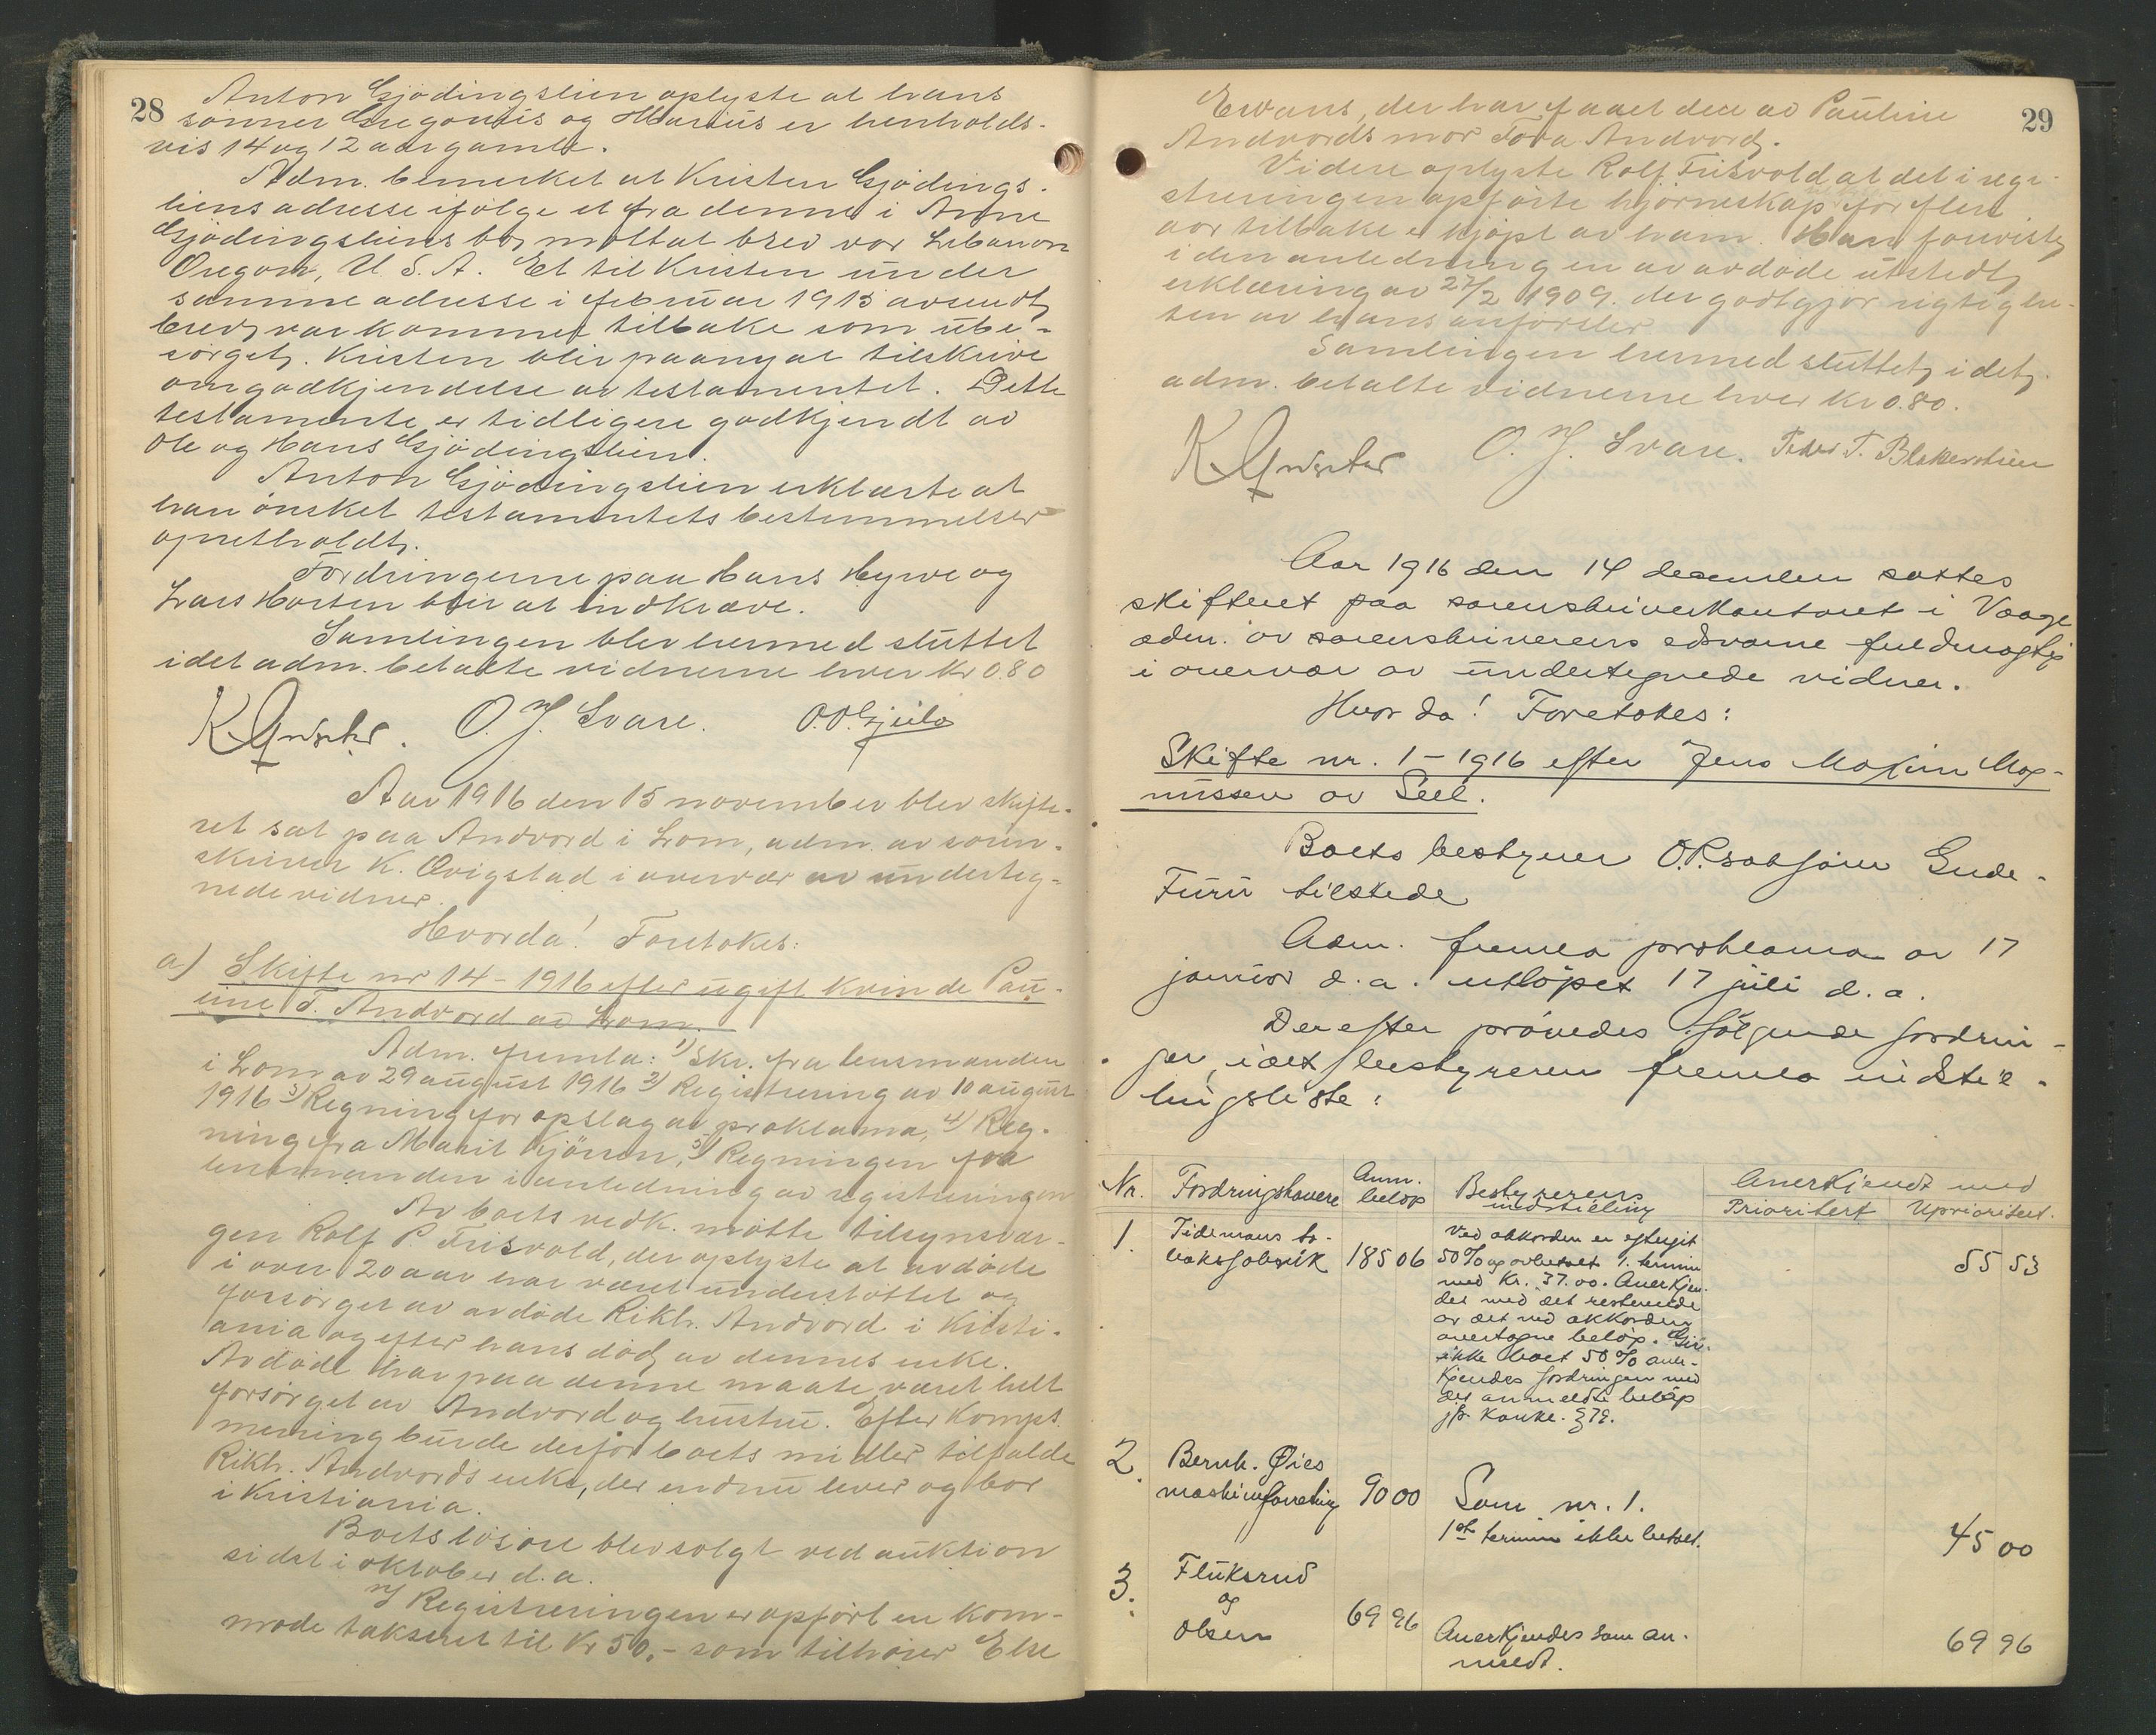 28
Anton Gjödingslien oplyste at hans
sönner Gregorius og Marius er henholds-
vis 14 og 12 aar gamle.
Adm. bemerket at Kristen Gjödings-
liens adresse ifölge et fra denne i Anne
Gjödingsliens bo mottat brev var Lebanon
Oregon, U.S.A. Et til Kristen under
samme adresse i februar 1915 avsendt
brev var kommet tilbake som ube-
sörget. Kristen blir paany at tilskrive
om godkjendelse av testamentet. Dette
testamente er tidligere godkjendt av
Ole og Hans Gjödingslien.
Anton Gjödingslien erklærte at
han önsket testamentets bestemmelser
opretholdt.
Fordringerne paa Hans Hyrve og
Lars Horten blir at indkræve.
Samlingen blev hermed sluttet
idet adm. betalte vidnerne hver kr 0.80
O. J. Svare. O. O. Gjeilo
Aar 1916 den 15 november blev skifte-
ret sat paa Andvord i Lom, adm. av soren-
skriver K. Qvigstad i overvær av underteg-
nede vidner.
Hvorda! Foretokes:
a) Skifte nr 14 - 1916 efter ugift kvinde Pau-
line T. Andvord av Lom.
Adm. fremla: 1) Skr. fra lensmanden
i Lom av 29 august 1916 2) Registrering av 10 august
1916 3) Regning for opslag av proklama, 4) Reg-
ning fra Marit Kjörren, 5) Regningen fra
lensmanden i anledning av registreringen
Av boets vedk. mötte tilsynsvær-
gen Rolf P. Frisvold, der oplyste at avdöde
i over 20 aar har været understöttet og
forsörget av avdöde Rikh. Andvord i Kristi-
ania og efter hans död av dennes enke.
Avdöde har paa denne maate været helt
forsörget av Andvord og hustru. Efter komps.
mening burde derfor boets midler tilfalde
Rikh. Andvords enke, der endnu lever og bor
i Kristiania.
Boets lösöre blev solgt ved auktion
sidst i oktober d.a.
I Registreringen er opfört en kom-
mode taksert til kr 50,- som tilhörer Else
29
Evans, der har faaet den av Pauline
Andvords mor Tora Andvord.
Videre oplyste Rolf Frisvold at det i regi-
streringen opförte hjörneskap for flere
aar tilbake er kjöpt av ham. Han foreviste
i den anledning en av avdöde utstedt
erklæring av 27/2 1909. der godtgjör rigtighe-
ten av hans anförsler
Samlingen hermed sluttet, idet
adm. betalte vidnerne hver kr 0.80.
O. J. Svare. Peder T. Blekerstuen
Aar 1916 den 14 desember sattes
skifteret paa sorenskriverkontoret i Vaage
adm. av sorenskriverens edsvorne fuldmægtig
i overvær av undertegnede vidner.
Hvorda! Foretokes:
Skifte nr. 1 - 1916 efter Jens Maxim Mag-
nussen av Sell.
Boets bestyrer O.R.saksförer Gude-
Furu tilstede
Adm. fremla proklama av 17
januar d.a. utlöpet 17 juli d.a.
Derefter prövedes fölgende fordrin-
ger, idet bestyreren fremla indstil-
lingsliste:
Nr. Fordringshavere Anm. belöp Bestyrerens indstilling Anerkjendt med
Prioritert Uprioritert.
1. Tidemans to-
baksfabrik 185 06 Ved akkorden er eftergit
50% og avbetalt 1. termin
med kr. 37.00. Anerkjen-
des med det resterende
av det ved akkorden
overtagne belöp. Gir
ikke boet 50% aner-
kjendes fordringen med
det anmeldte belöp
jfr. konkl. § 79.
55 53
2. Bernh. Øies
maskinforretning 90 00 Som nr. 1.
1ste termin ikke betalt.
45 00
3. Fluksrud
og
Olsen 69 96 Anerkjendes som an-
meldt.
69 96